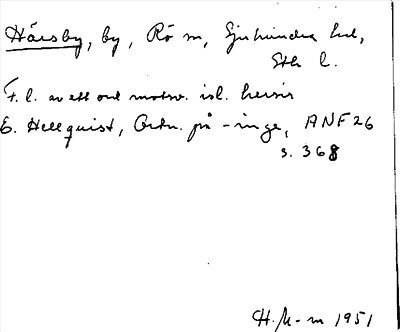 Härsby, by, Rö sn, Sjuhundra hd,
Sth l.
F.l. av ett ord motsv. isl. hersir
E. Hellquist, Ortn. på -inge, ANF 26
s. 368
H. M-m 1951